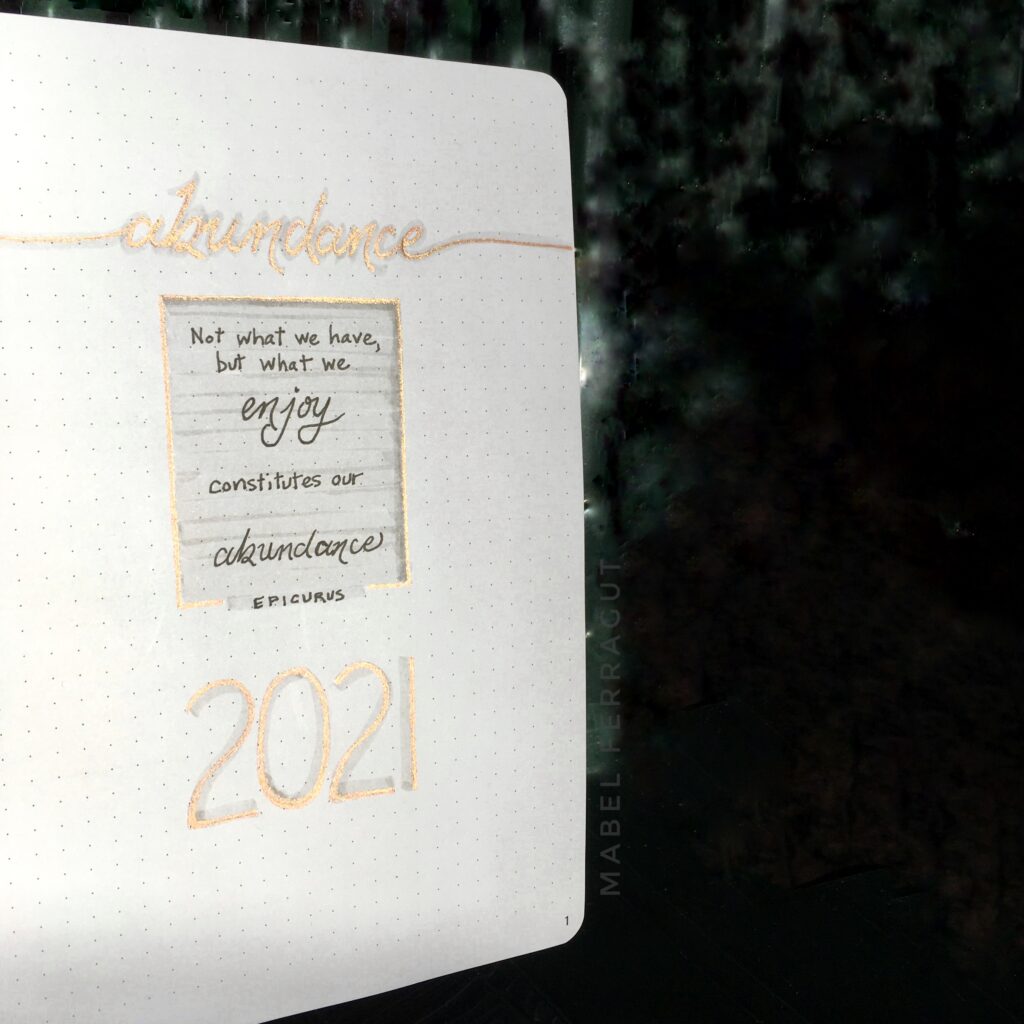 abundance
Not what we have,
but what we
enjoy
constitutes our
abundance
EPICURUS
2021
1
MABEL FERRAGUT